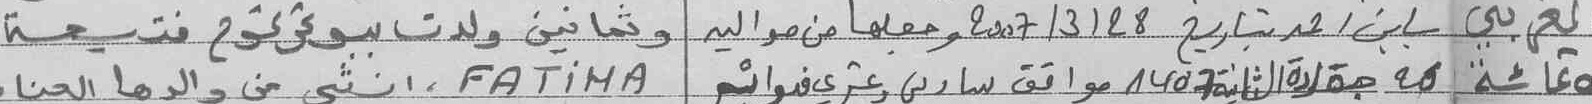 لعربي بابن احمد بتاريخ 2007/3/28 وجعلها من مواليد وثمانين ولدت ببوعكوح فتيحة
وعائشة 26 جمادة الثانية 1407 موافق سادس وعشري فبرائر FATIMA، انثى من والدها